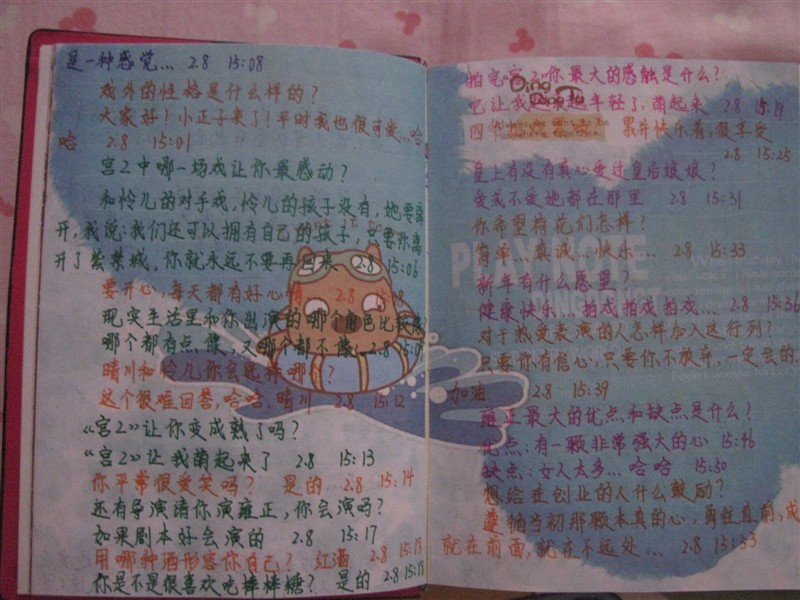 是一种感觉... 2.8 15:08
戏外的性格是什么样的？
大家好！小正子来了！平时我也很可爱...哈
哈 2.8 15:01
宫2中哪一场戏让你最感动？
和怜儿的对手戏，怜儿的孩子没有，她要离
开，我说：我们还可以拥有自己的孩子，女要你离
开了紫禁城，你就永远不要再回来 2.8 15:06
要开心，每天都有好心情 2.8
现实生活里和你出演的哪个角色比较像？
哪个都有点像，又哪个都不像！ 2.8 15:09
晴川和怜儿你会选择哪个？
这个很难回答，哈哈，晴川 2.8 15:12
《宫2》让你变成熟了吗？
《宫2》让我萌起来了 2.8 15:13
你平常很爱笑吗？ 是的 2.8 15:14
还有导演请你演雍正，你会演吗？
如果剧本好会演的 2.8 15:17
用哪种酒形容你自己？ 红酒 2.8 15:18
你是不是很喜欢吃棒棒糖？ 是的 2.8 15:18
拍完"宫2"你最大的感触是什么？
它让我 起年轻了，萌起来 2.8 15:19
累并快乐着，很享受
2.8 15:25
皇上有没有真心爱过皇后娘娘？
爱或不爱她都在那里 2.8 15:31
你希望荷花们怎样？
简单...真诚...快乐... 2.8 15:33
PLAY NOTE
新年有什么愿望？
健康快乐...拍戏拍戏拍戏... 2.8 15:36
对于热爱表演的人怎样加入这行列？
只要你有信心，只要你不放弃，一定会的..
加油 2.8 15:39
雍正最大的优点和缺点是什么？
优点：有一颗非常强大的心 15:46
缺点：女人太多...哈哈 15:50
想给在创业的人什么鼓励？
遵循当初那颗本真的心，勇往直前，成
就在前面，就在不远处... 2.8 15:53